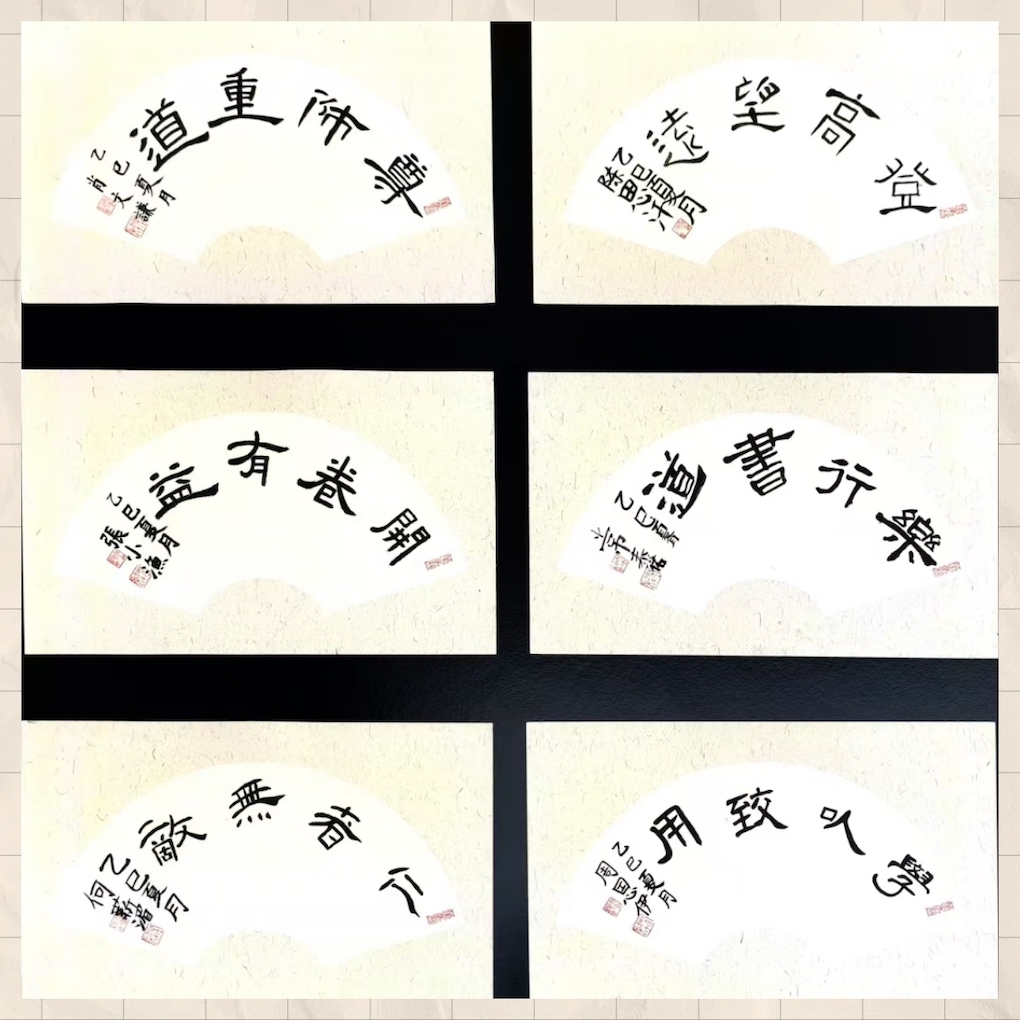 尊師重道
乙巳夏月
肖文謙
登高望遠
乙巳夏月
陳思汗
開卷有益
乙巳夏月
張小漁
樂行書道
乙巳夏月
仁者無敵
乙巳夏月
學以致用
乙巳夏月
周思伊